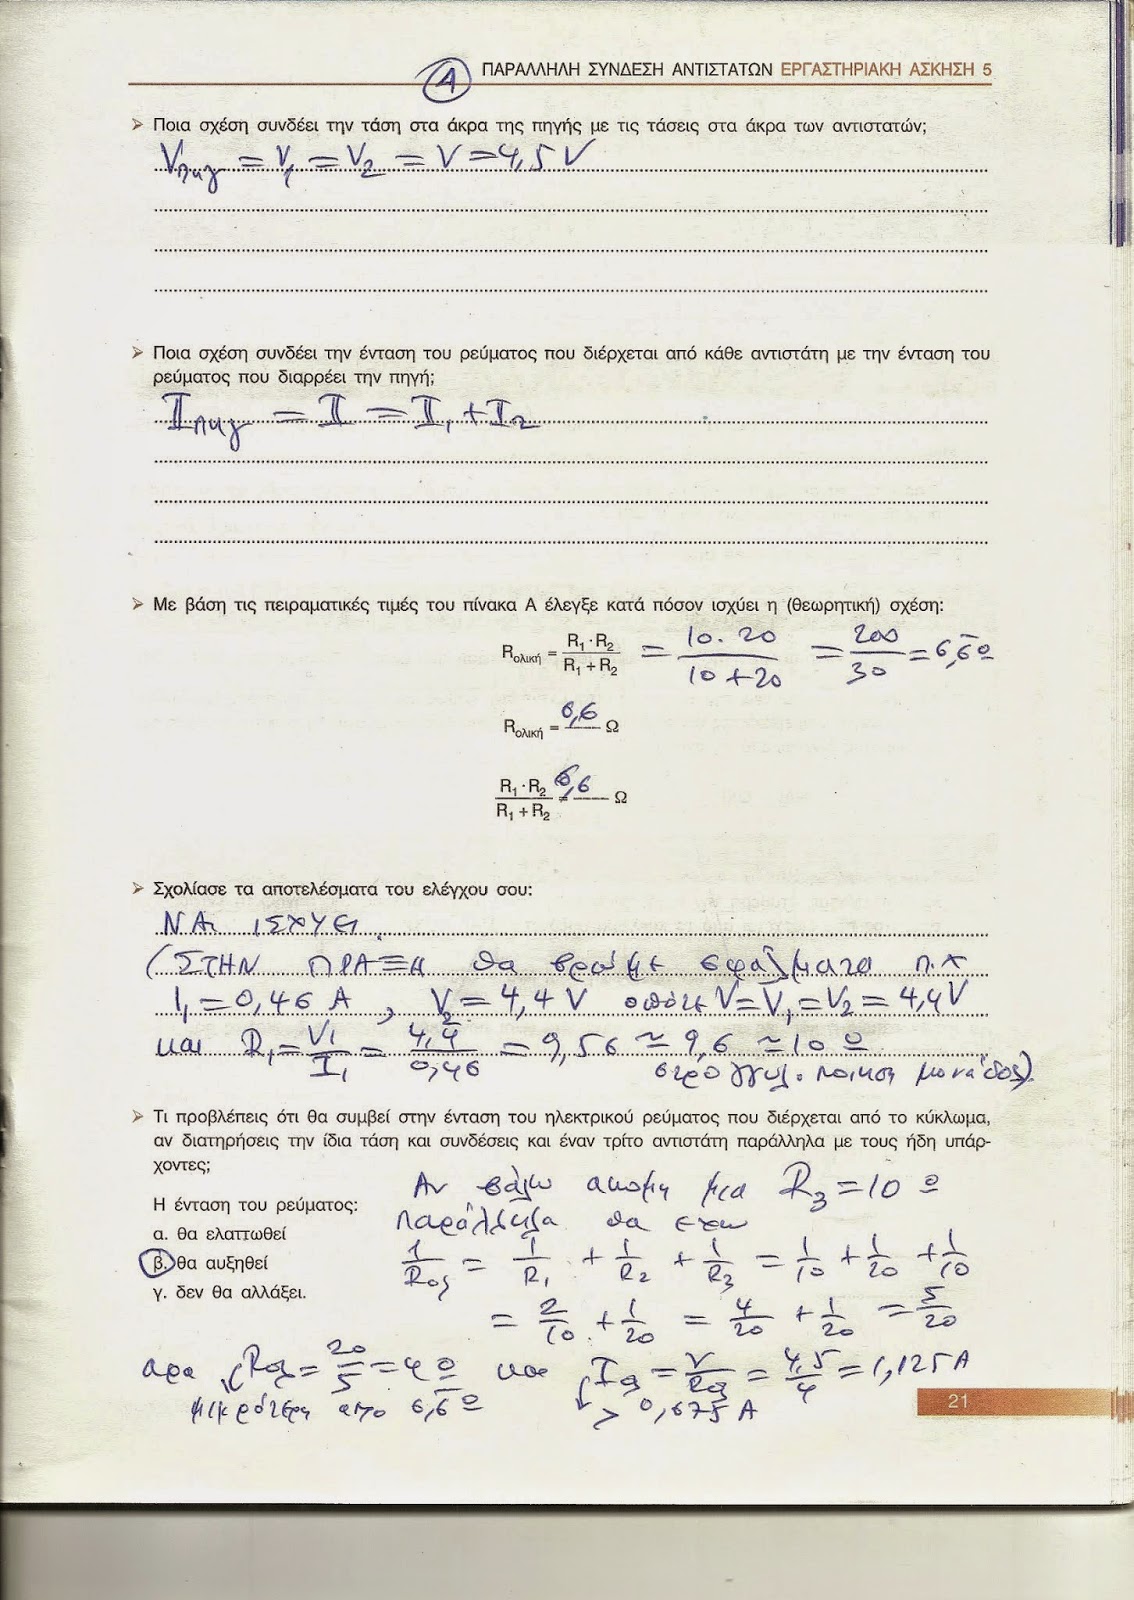 ④ ΠΑΡΑΛΛΗΛΗ ΣΥΝΔΕΣΗ ΑΝΤΙΣΤΑΤΩΝ ΕΡΓΑΣΤΗΡΙΑΚΗ ΑΣΚΗΣΗ 5
➢ Ποια σχέση συνδέει την τάση στα άκρα της πηγής με τις τάσεις στα άκρα των αντιστατών;
Vπηγ = V₁ = V₂ = V = 4,5 V
➢ Ποια σχέση συνδέει την ένταση του ρεύματος που διέρχεται από κάθε αντιστάτη με την ένταση του
ρεύματος που διαρρέει την πηγή;
Iπηγ = I = I₁ + I₂
➢ Με βάση τις πειραματικές τιμές του πίνακα Α έλεγξε κατά πόσον ισχύει η (θεωρητική) σχέση:
Rολική = R₁·R₂ / R₁+R₂ = 10·20 / 10+20 = 200/30 = 6,6 Ω
Rολική = 6,6 Ω
R₁·R₂ / R₁+R₂ = 6,6 Ω
➢ Σχολίασε τα αποτελέσματα του ελέγχου σου:
ΝΑΙ ΙΣΧΥΕΙ.
(ΣΤΗΝ ΠΡΑΞΗ θα βρούμε σφάλματα π.χ
I₁ = 0,46 A, V₂ = 4,4 V οπότε V = V₁ = V₂ = 4,4V
και R₁ = V₁/I₁ = 4,4/0,46 = 9,56 ≃ 9,6 ≃ 10 Ω
στρογγυλ. ποίηση μονάδος).
➢ Τι προβλέπεις ότι θα συμβεί στην ένταση του ηλεκτρικού ρεύματος που διέρχεται από το κύκλωμα,
αν διατηρήσεις την ίδια τάση και συνδέσεις και έναν τρίτο αντιστάτη παράλληλα με τους ήδη υπάρ-
χοντες;
Η ένταση του ρεύματος:
α. θα ελαττωθεί
β. θα αυξηθεί
γ. δεν θα αλλάξει.
Αν βάλω ακομη μια R₃ = 10 Ω
παράλληλα θα εχω
1/Rολ = 1/R₁ + 1/R₂ + 1/R₃ = 1/10 + 1/20 + 1/10
= 2/10 + 1/20 = 4/20 + 1/20 = 5/20
αρα Rολ = 20/5 = 4 Ω και Iολ = V/Rολ = 4,5/4 = 1,125 A
μικρότερη απο 6,6 Ω > 0,675 A
21